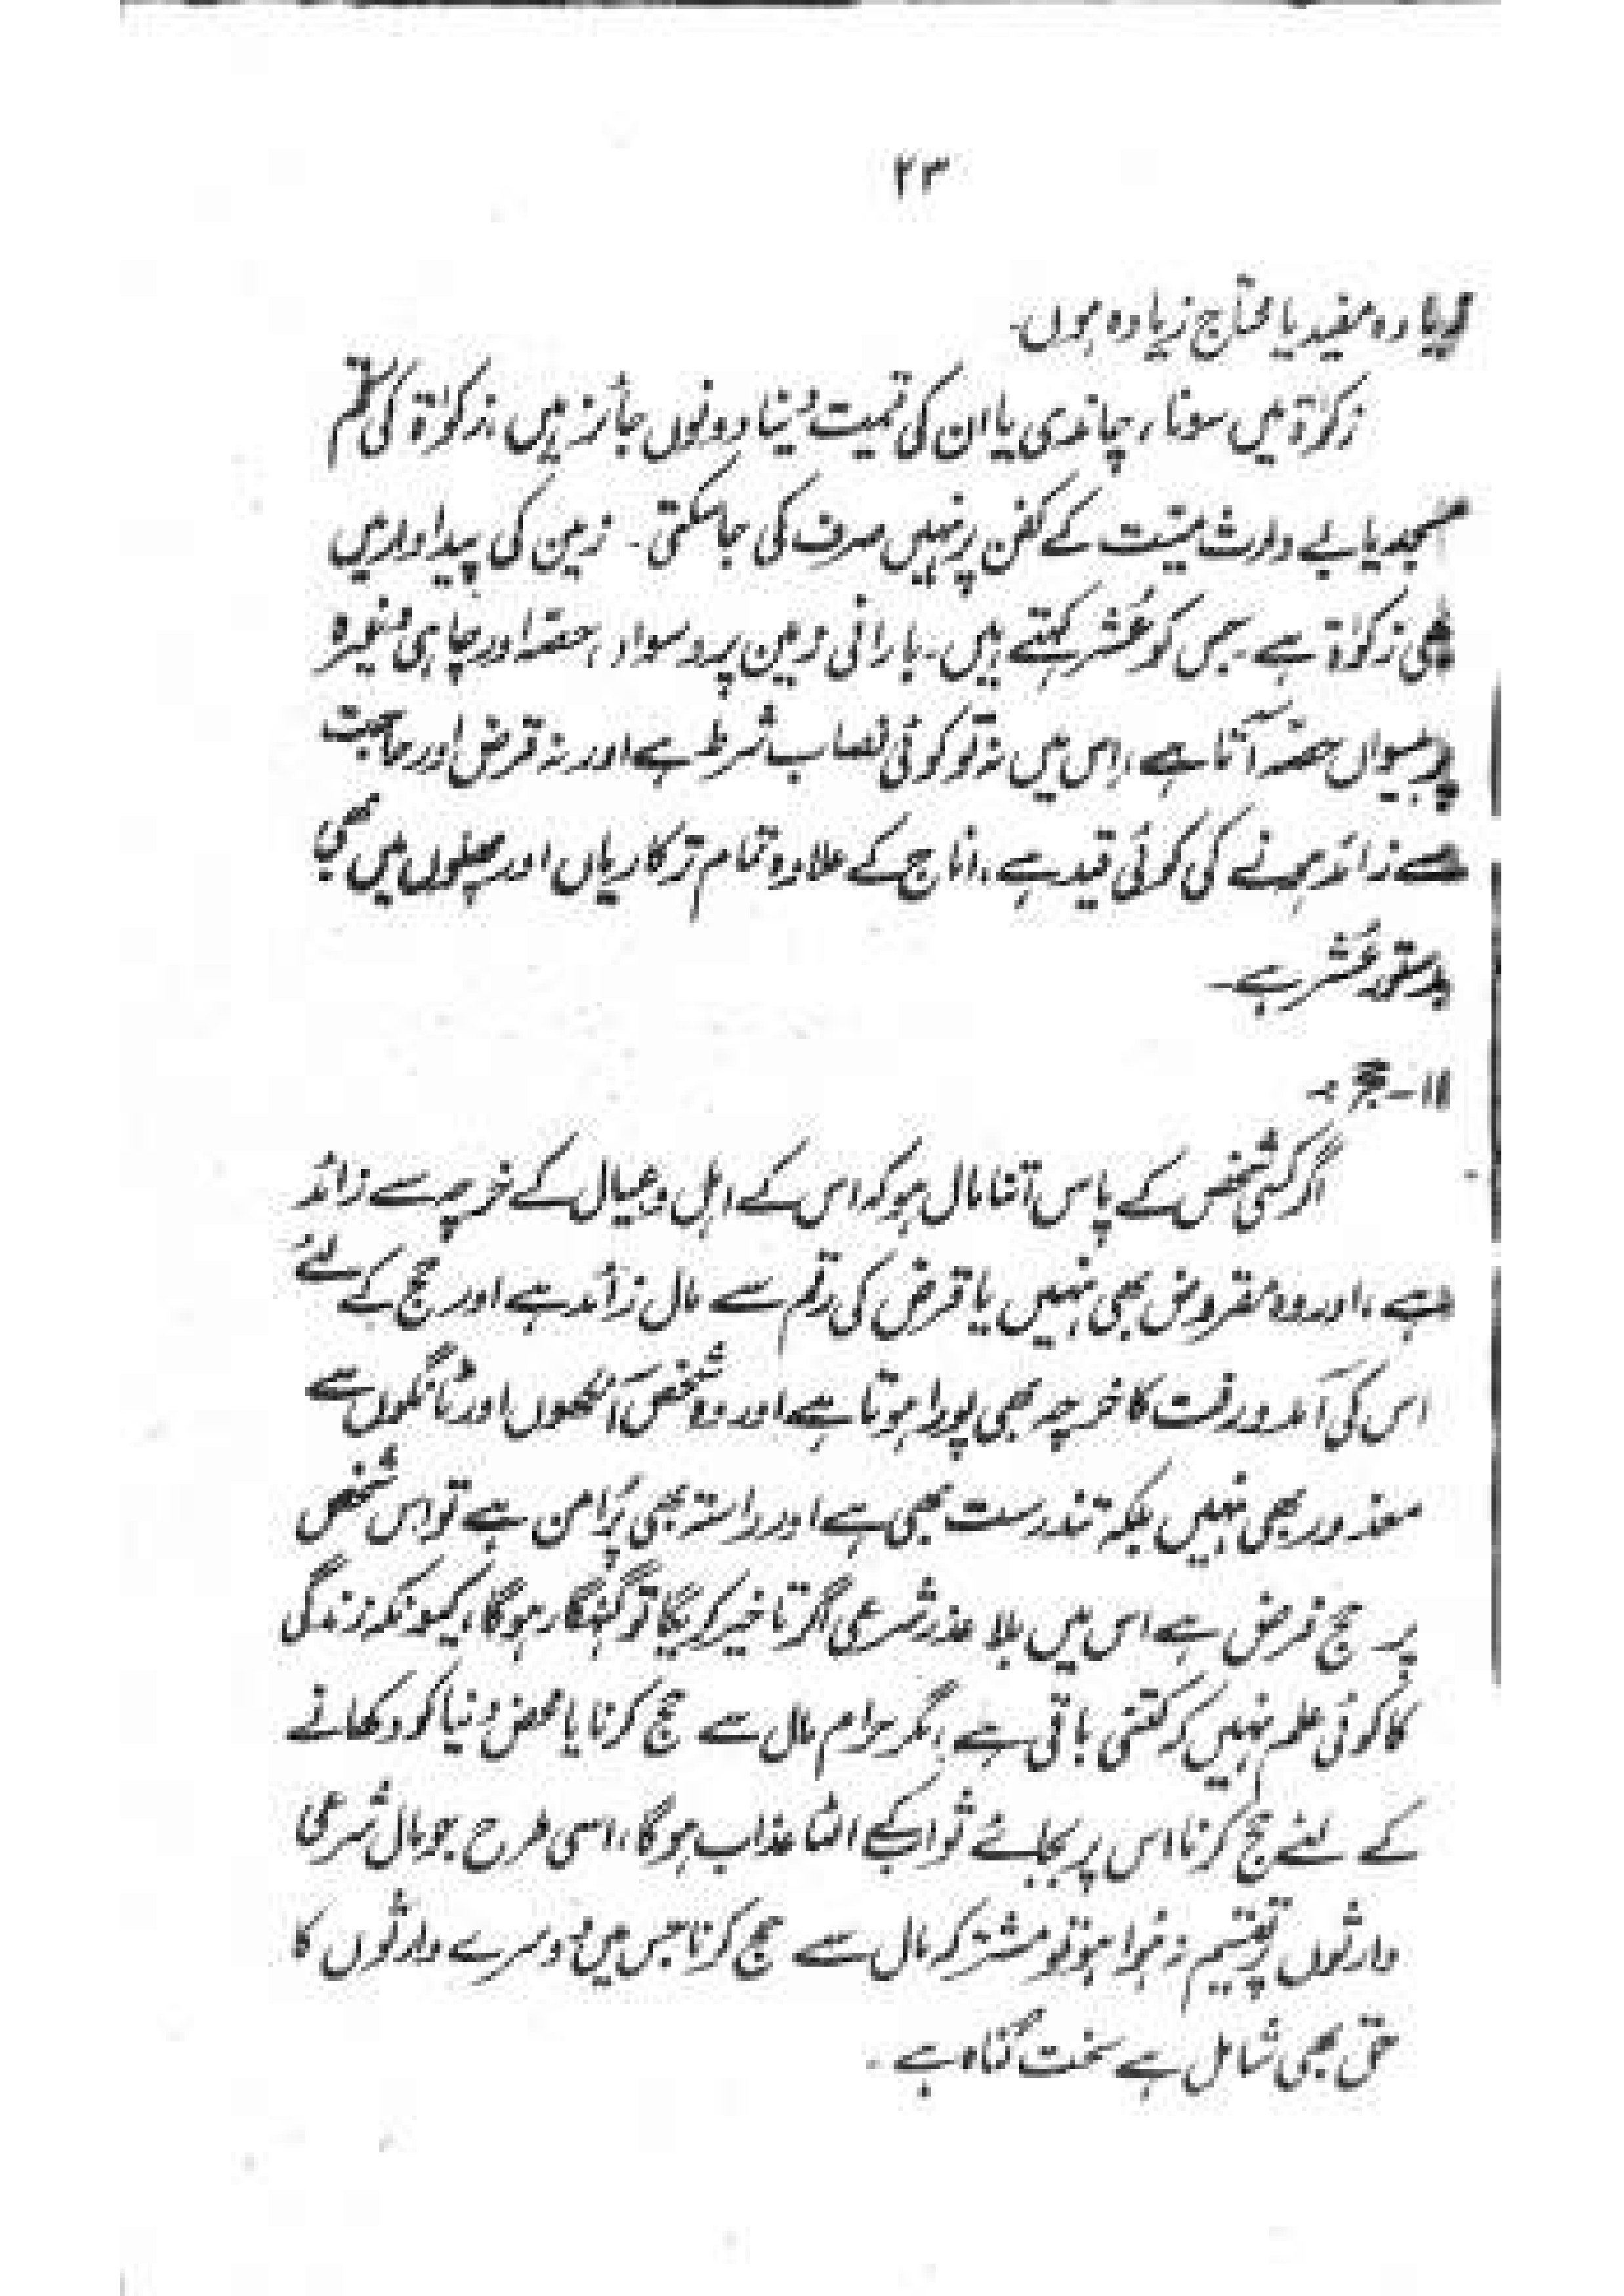 ۲۳
زیادہ مفید یا محتاج زیادہ ہوں۔
زکوٰۃ میں سونا، چاندی یا ان کی قیمت دینا دونوں جائز ہیں، زکوٰۃ کی رقم
مسجد یا بے وارث میّت کے کفن پر نہیں صرف کی جا سکتی۔ زمین کی پیداوار میں
بھی زکوٰۃ ہے۔ جس کو عُشر کہتے ہیں۔ بارانی زمین پر دسواں حصّہ اور چاہی وغیرہ
پر بیسواں حصّہ آتا ہے، اس میں نہ تو کوئی نصاب شرط ہے اور نہ قرض اور حاجت
سے زائد ہونے کی کوئی قید ہے، اناج کے علاوہ تمام ترکاریاں اور پھلوں میں بھی
بدستور عُشر ہے۔
۱۱۔ حج :۔
اگر کسی شخص کے پاس اتنا مال ہو کہ اس کے اہل وعیال کے خرچہ سے زائد
ہے، اور وہ مقروض بھی نہیں یا قرض کی رقم سے مال زائد ہے اور حج کے لئے
اس کی آمدورفت کا خرچہ بھی پورا ہوتا ہے اور وہ شخص آنکھوں اور ٹانگوں سے
معذور بھی نہیں بلکہ تندرست بھی ہے اور راستہ بھی پُرامن ہے تو اس شخص
پر حج فرض ہے اس میں بلا عذر شرعی اگر تاخیر کریگا تو گنہگار ہوگا، کیونکہ زندگی
کا کوئی علم نہیں کہ کتنی باقی ہے، مگر حرام مال سے حج کرنا یا محض دنیا کو دکھانے
کے لئے حج کرنا اس پر بجائے ثواب کے الٹا عذاب ہوگا، اسی طرح جو مال شرعی
وارثوں پر تقسیم نہ ہوا ہو تو مشترکہ مال سے حج کرنا جس میں دوسرے وارثوں کا
حق بھی شامل ہے سخت گناہ ہے۔